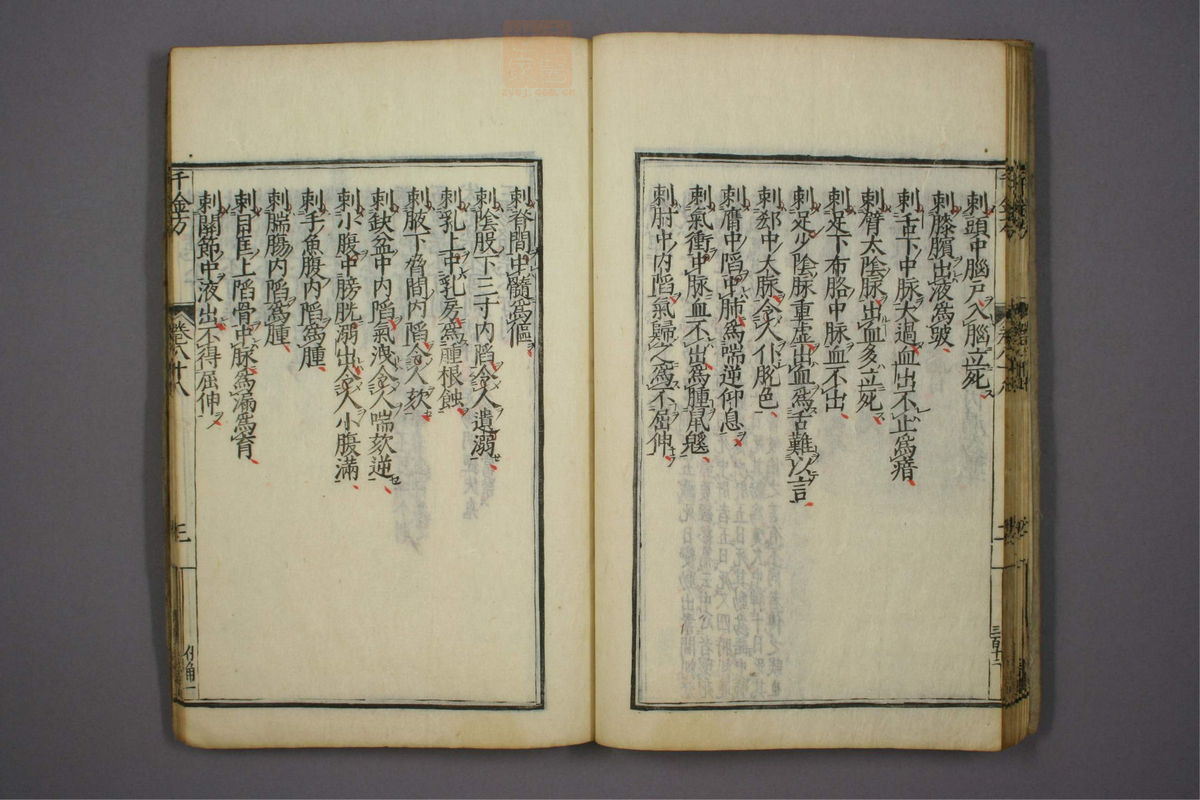 刺頭中腦戸入腦立死
刺膝臏出液為跛
刺舌下中脉大過血出不止為瘖
刺臂太陰脉出血多立死
刺足下布胳中脉血不出
刺足少陰脉重虛出血為舌難以言
刺郄中大脉令人仆脫色
刺膺中陷中肺為喘逆仰息
刺氣衝中脉血不出為腫鼠
刺肘中内陷氣歸之為不屈伸
刺脊間中髓為傴
刺陰股下三寸内陷令人遺溺
刺乳上中乳房為腫根蝕
刺腋下脅間内陷令人欬
刺缺盆中内陷氣洩令人喘欬逆
刺小腹中膀胱溺出令人小腹滿
刺手魚腹内陷為腫
刺腨腸内陷為腫
刺目匡上陷骨中脉為漏為盲
刺關節中液出不得屈伸
千金方
卷八十八
三